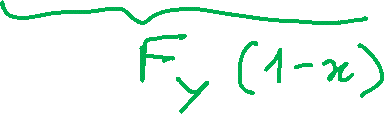 F_y (1-x)